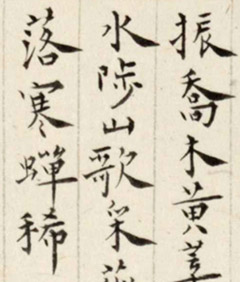 振喬木黃
水陟山歌采
落寒蟬稀